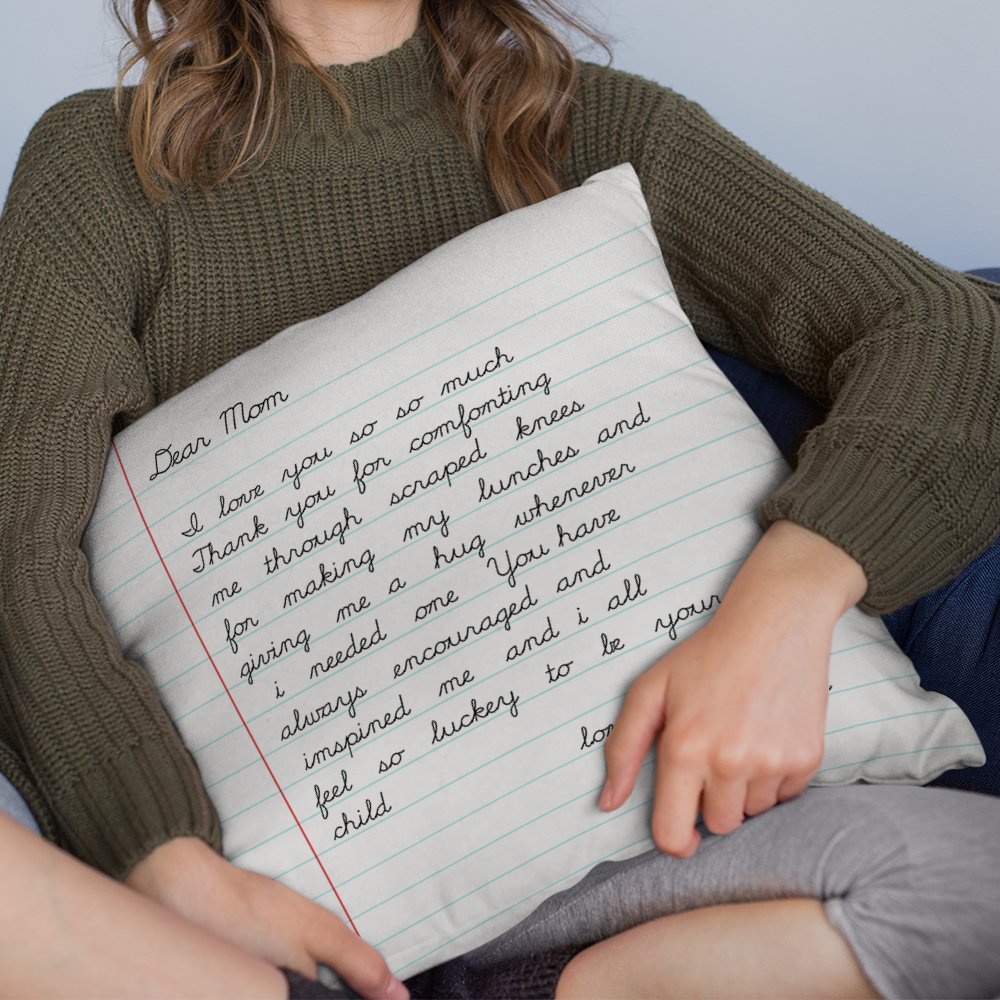 Dear Mom
I love you so so much
Thank you for comfonting
me through scraped knees
for making my lunches and
giving me a hug whenever
i needed one You have
always encouraged and
imspined me and i all
feel so luckey to be your
child